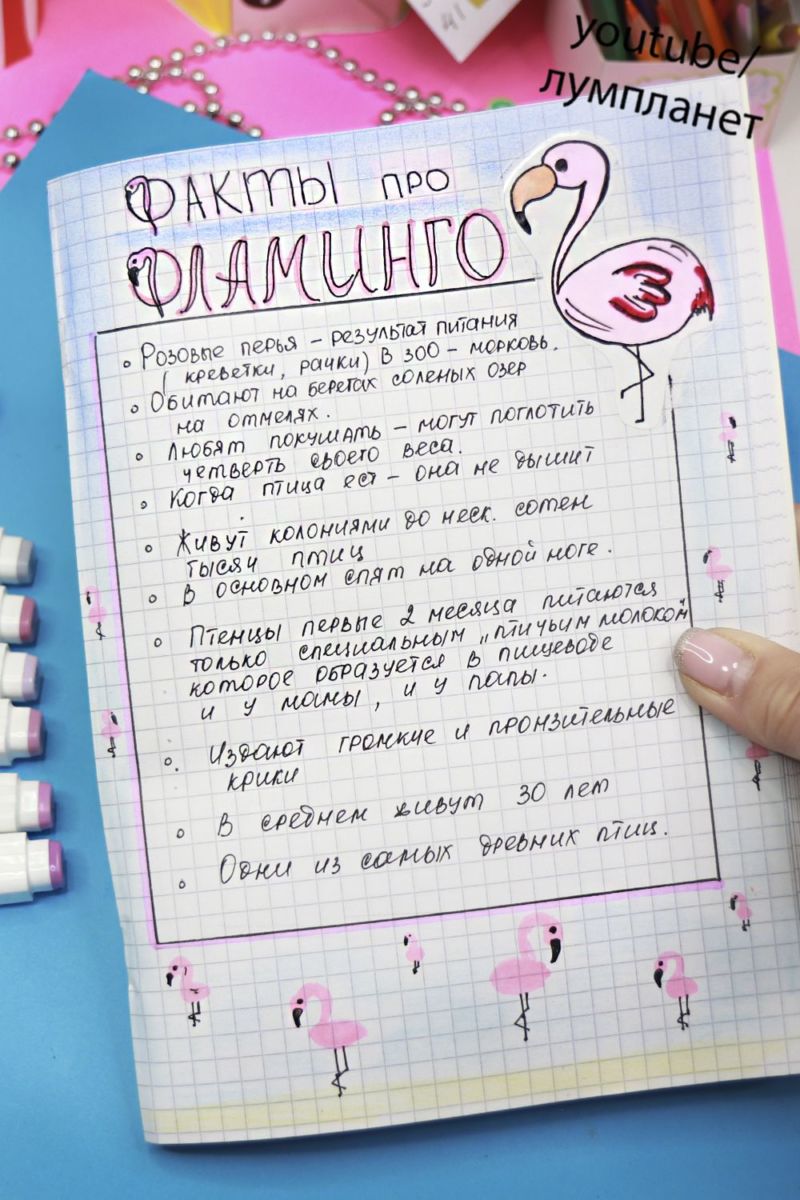 youtube/
лумпланет
ФАКТЫ ПРО
ФЛАМИНГО
Розовые перья – результат питания
( креветки, рачки) В зоо – морковь.
Обитают на берегах соленых озер
на отмелях.
Любят покушать – могут поглотить
четверть своего веса.
Когда птица ест – она не дышит
Живут колониями до неск. сотен
тысяч птиц
В основном спят на одной ноге.
Птенцы первые 2 месяца питаются
только специальным „птичьим молоком
которое образуется в пищеводе
и у мамы, и у папы.
Издают громкие и пронзительные
крики
В среднем живут 30 лет
Одни из самых древних птиц.